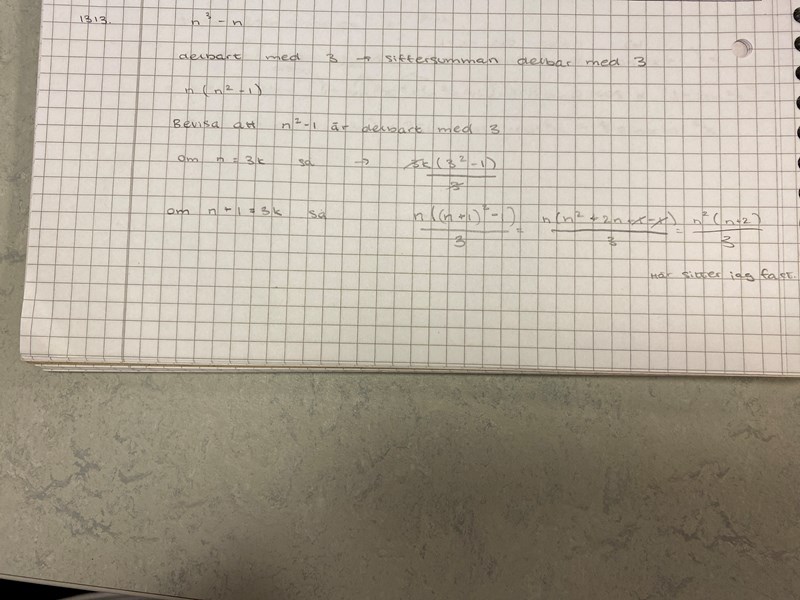 1313. n³ - n
delbart med 3 → siffersumman delbar med 3
n(n² - 1)
Bevisa att n² - 1 är delbart med 3
om n = 3k så → 3k(3² - 1) / 3
om n + 1 = 3k så n((n+1)² - 1) / 3 = n(n² + 2n + 1 - 1) / 3 = n²(n+2) / 3
här sitter jag fast.